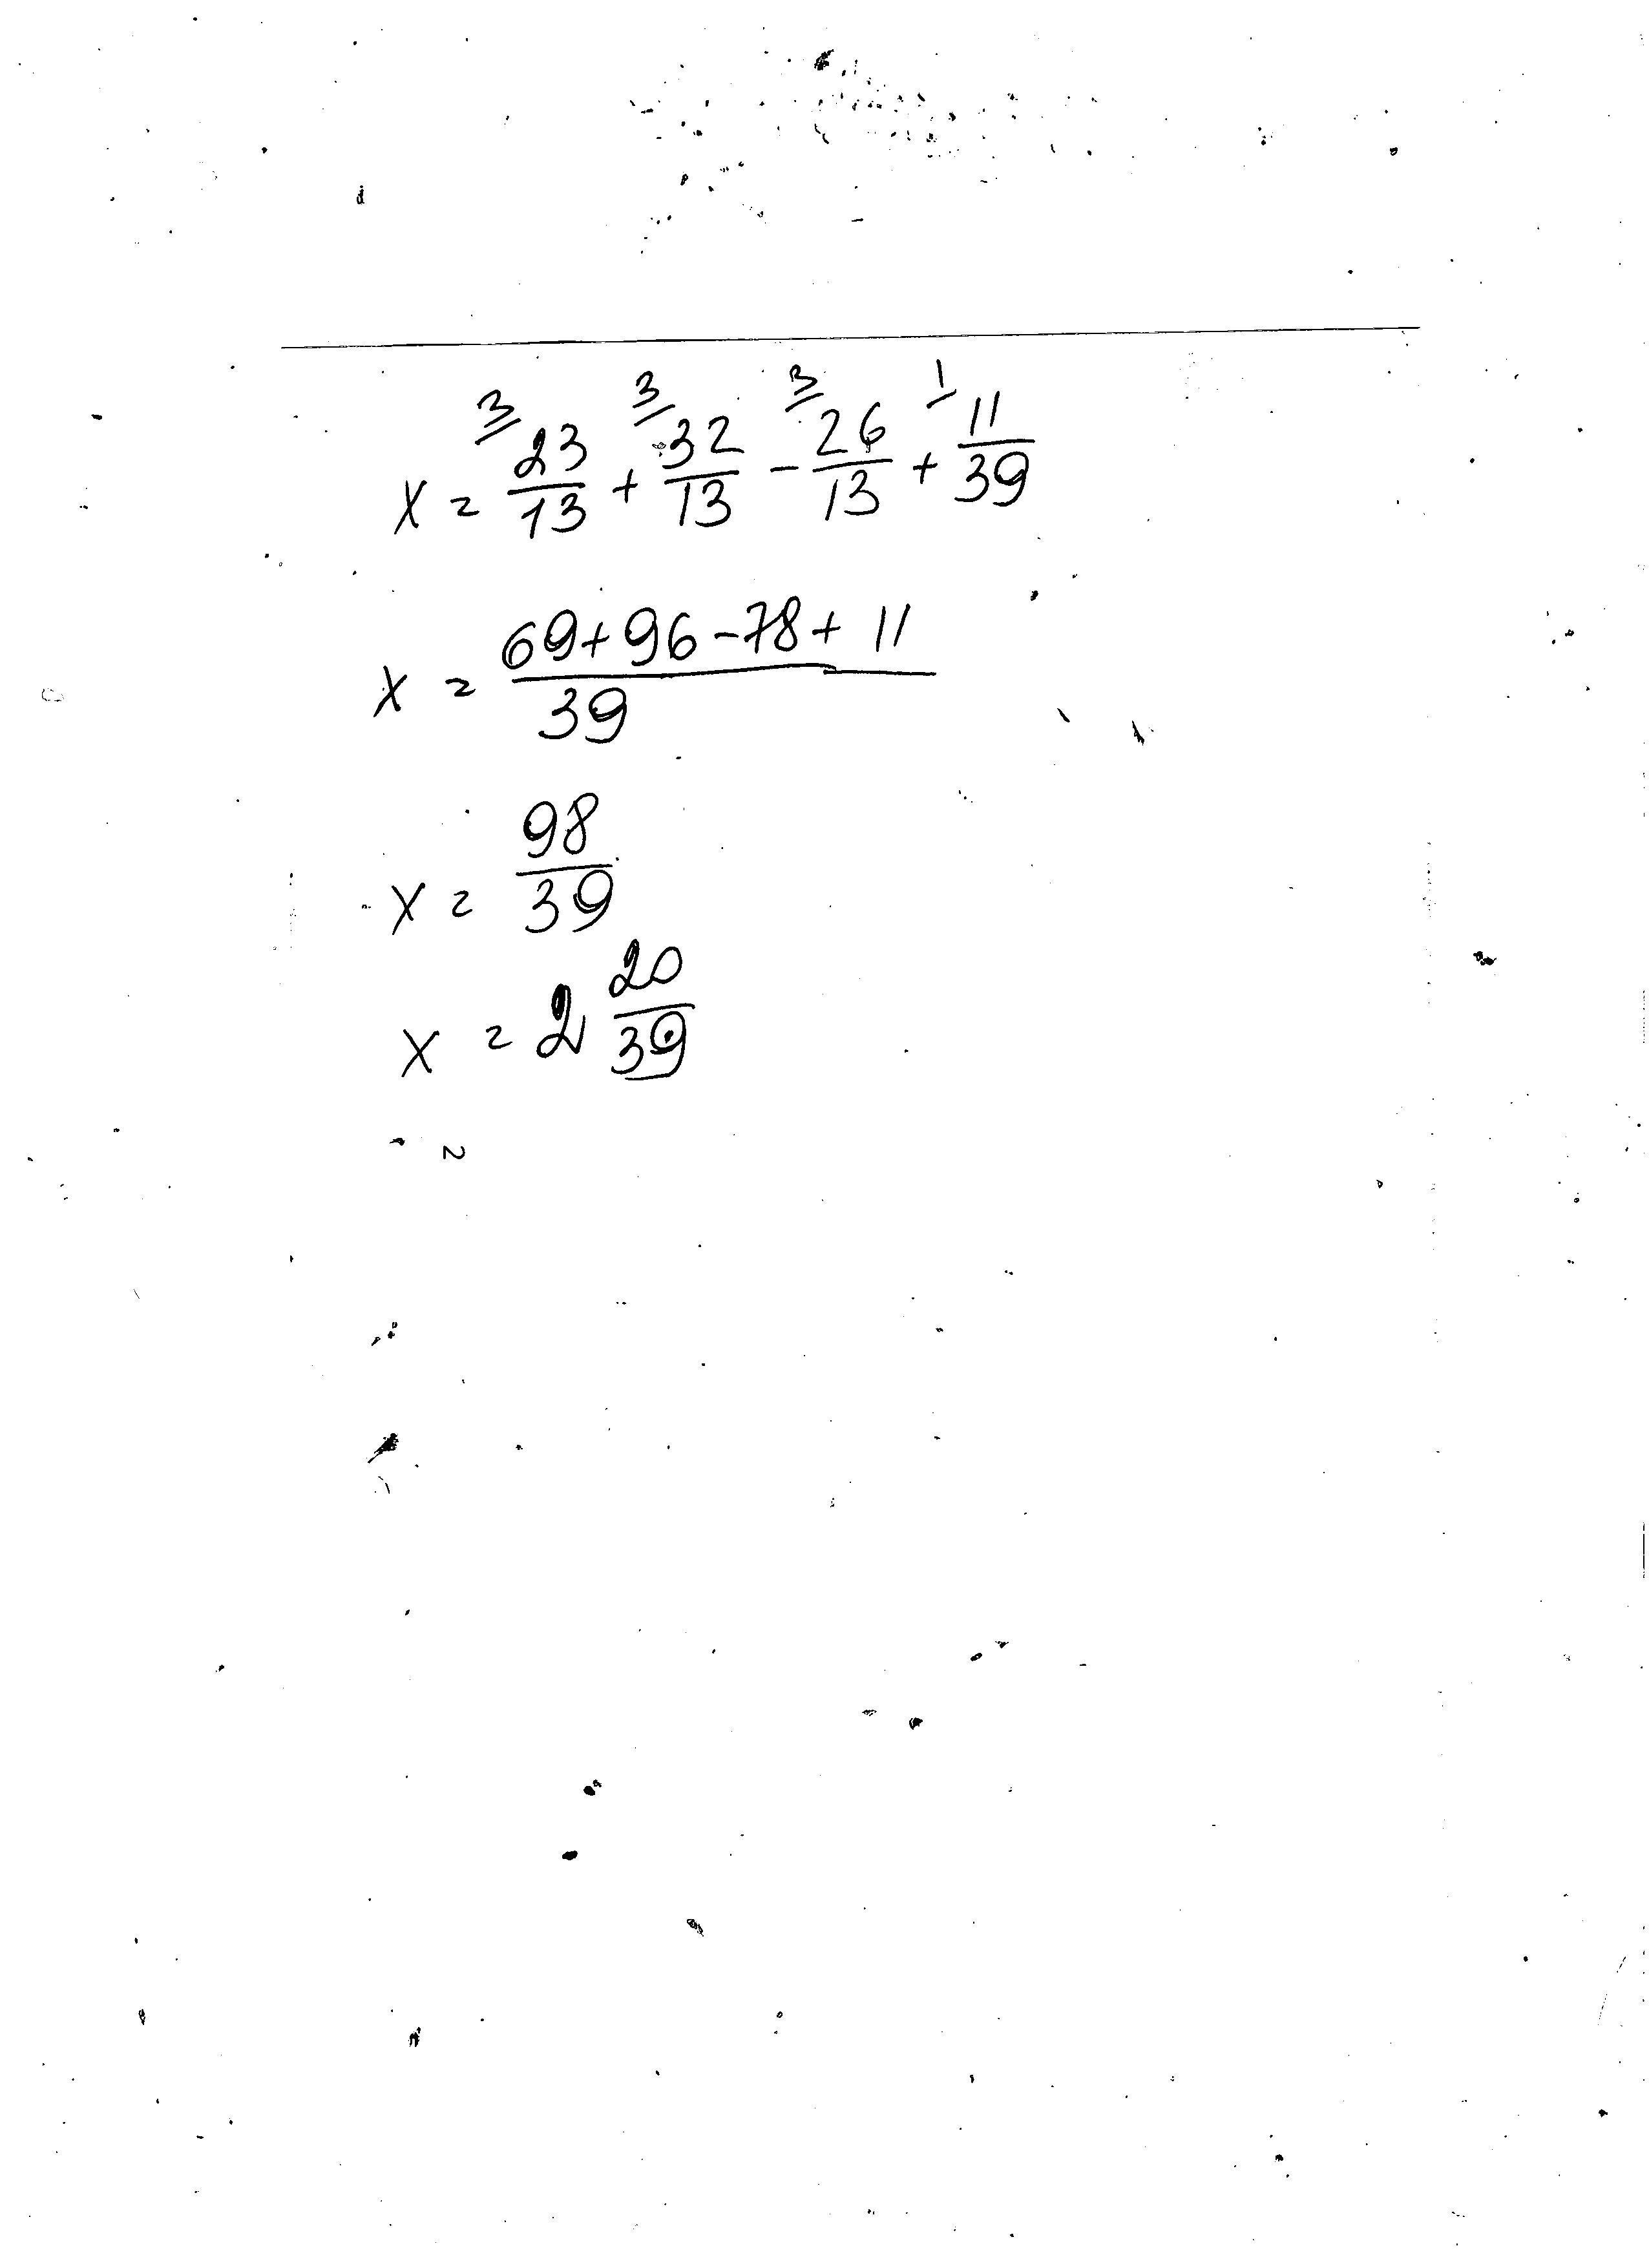 x = 3/ 23/13 + 3/ 32/13 - 3/ 26/13 + 1/ 11/39
x = (69 + 96 - 78 + 11)/39
x = 98/39
x = 2 20/39